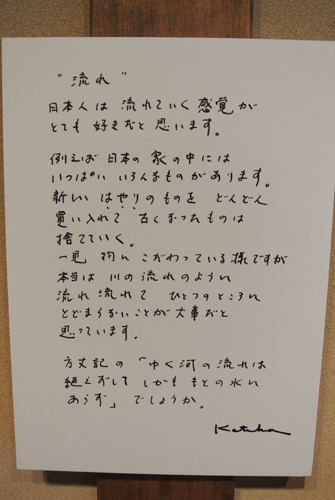 "流れ"
日本人は 流れていく 感覚が
とても 好きだと 思います。
例えば 日本の 家の中には
いっぱい いろんなものがあります。
新しい はやりのものを どんどん
買い入れて 古くなったものは
捨てていく。
一見 物に こだわっている 様ですが
本当は 川の 流れのように
流れ 流れて ひとつのところに
とどまらないことが 大事だと
思っています。
方丈記の 「ゆく河の流れは
絶えずして しかも もとの水に
あらず」 でしょうか。